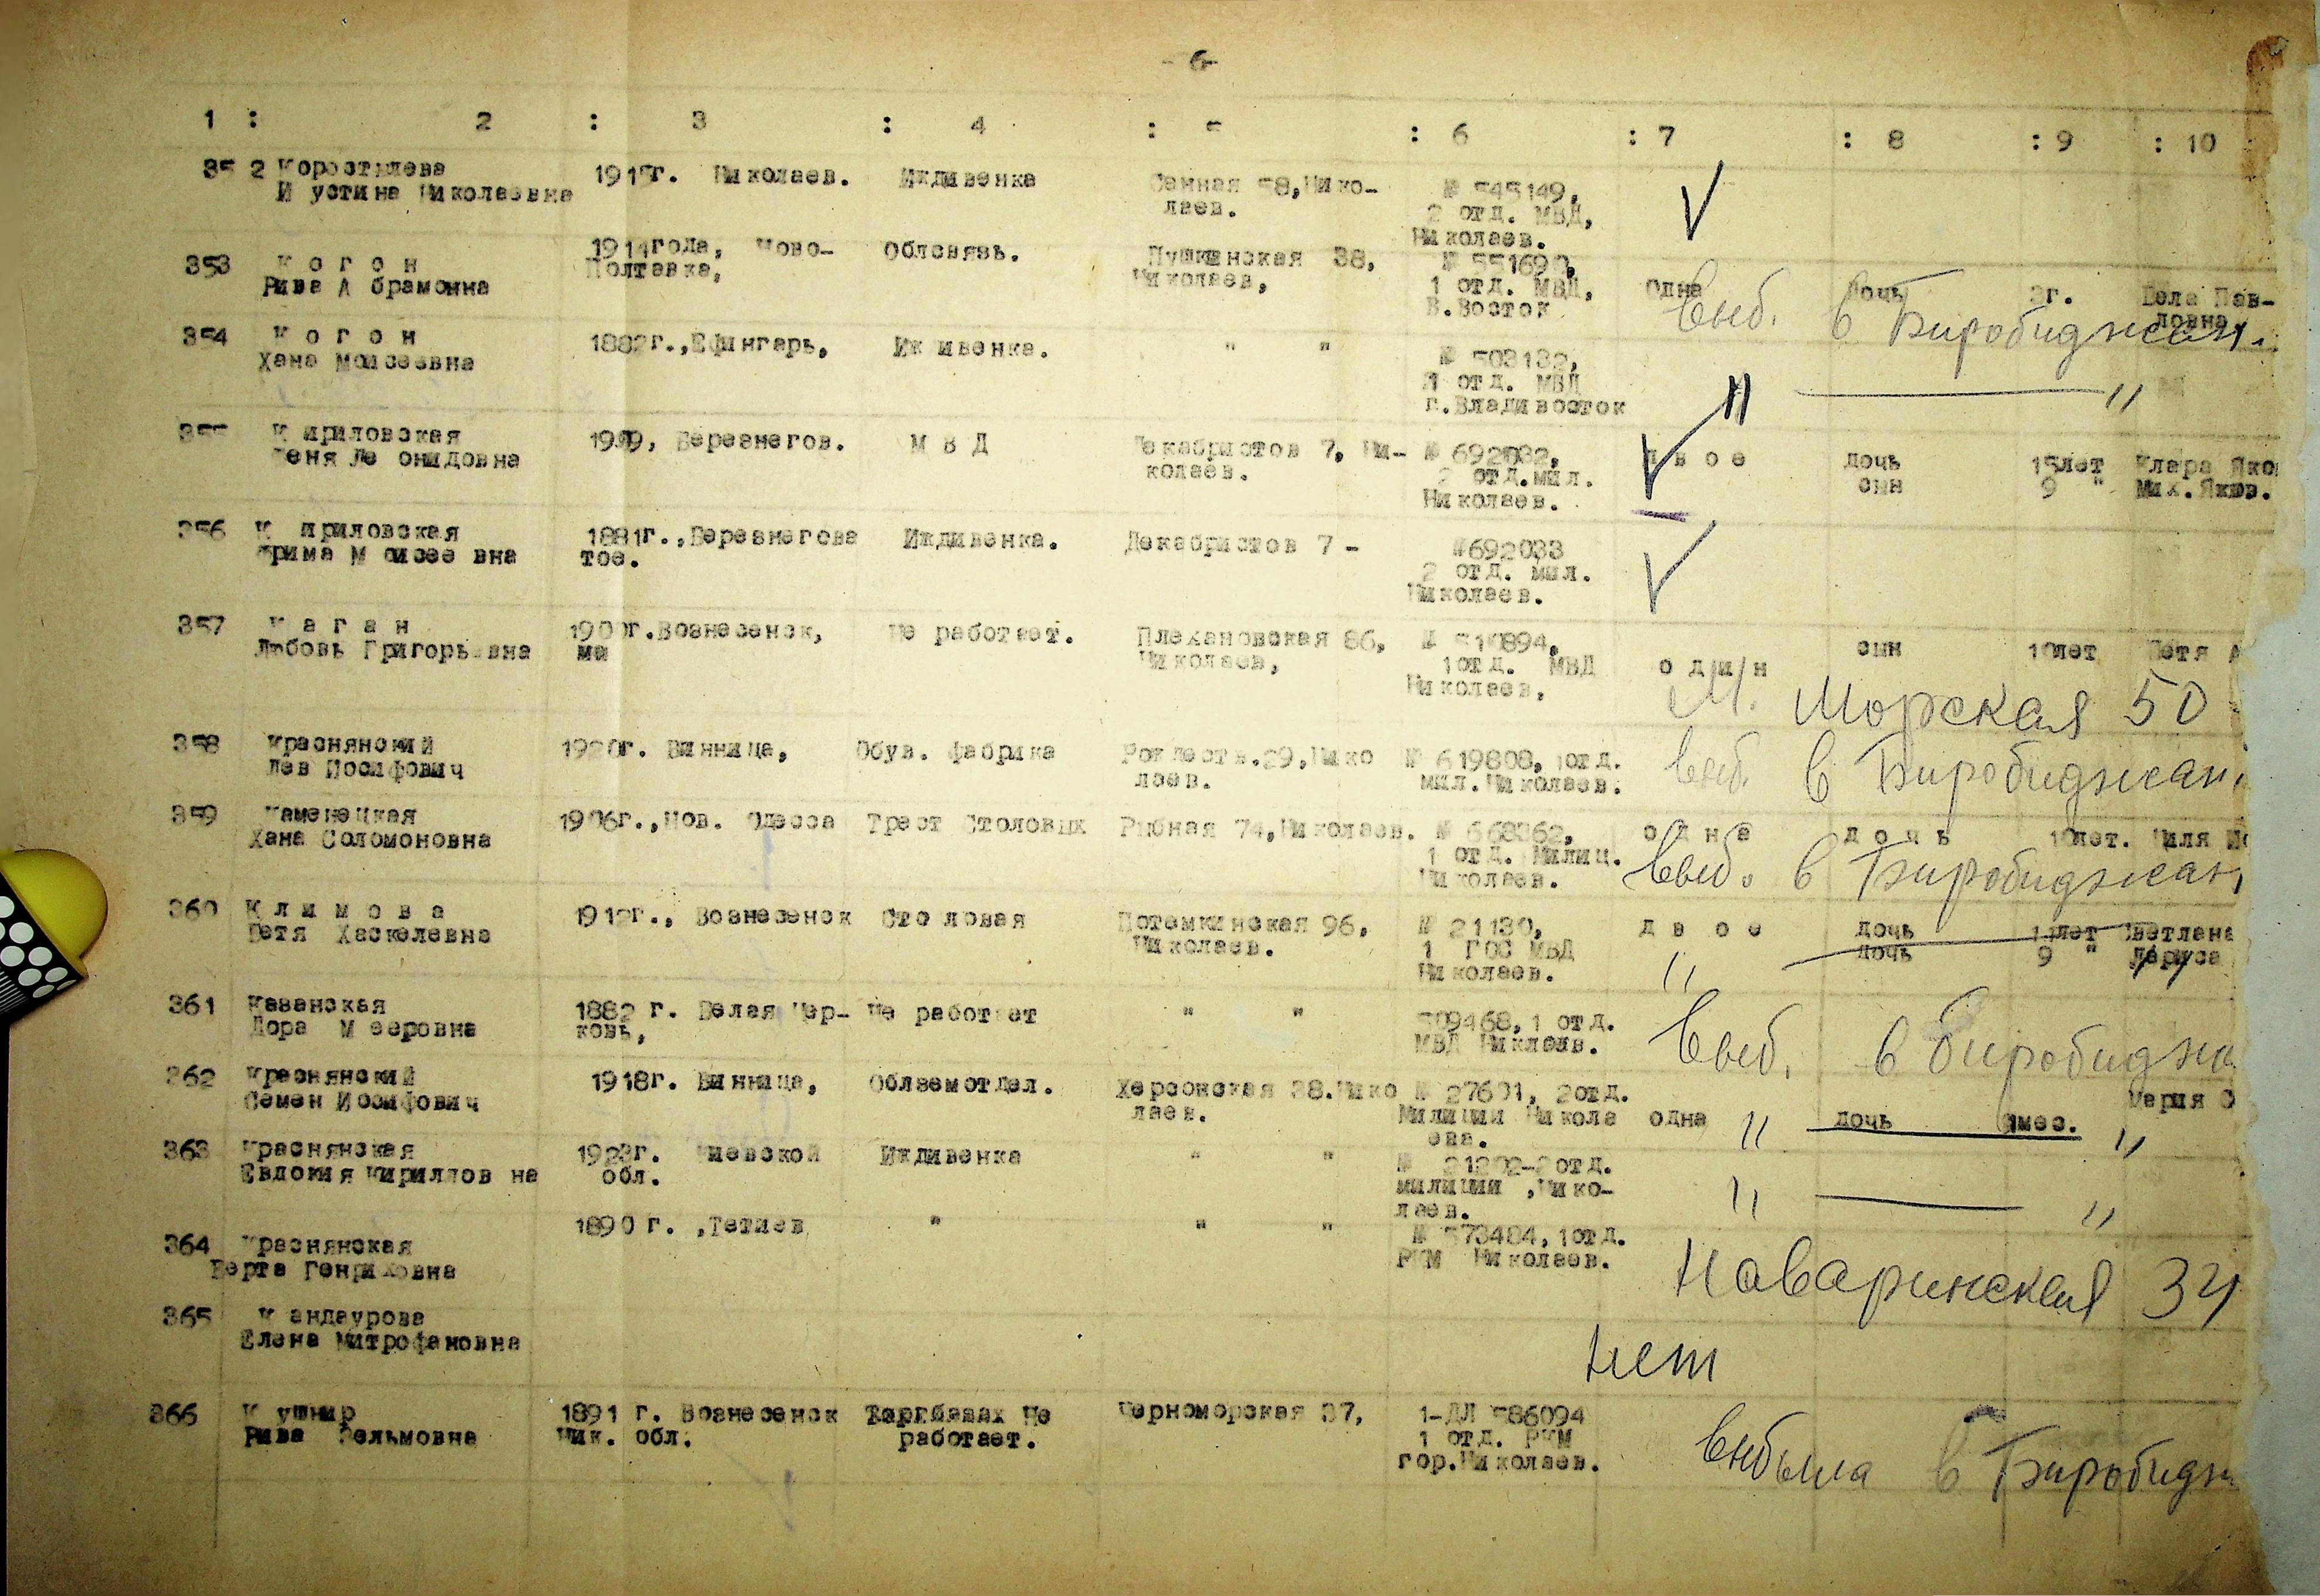 - 6-
1 : 2 : 3 : 4 : 6 : 7 : 8 : 9 : 10
352 Коростылева
Иустина Николаевна
Николаев. Иждивенка
Сенная 58, Нико-
лаев.
№ 545149,
2 отд. МВД,
Николаев.
353 Когон
Рива Абрамовна
1914года, Ново-
Полтавка,
Облсвязь.
Пушкинская 38,
Николаев,
1 отд. МВД,
В.Восток
Одна дочь 3г. Бела Пав-
ловна
выб. в Биробиджан.
354 Когон
Хана Моисеевна
1882г.,Ефингарь, Иждивенка. " "
№ 503132,
1 отд. МВД
г.Владивосток
" "
355 Кириловская
Леонидовна
Березнегов. МВД
Декабристов 7, Ни-
колаев.
2 отд.мил.
Николаев.
двое дочь 15лет Клара Яко
сын 9 " Мих.Яков.
356 Кириловская
Фрима Моисеевна
1881г.,Березнегова
тое.
Иждивенка. Декабристов 7 -
№692033
2 отд. мил.
Николаев.
357 Каган
Любовь Григорьевна
Вознесенск,
Не работает.
Плехановская 86,
Николаев,
1отд. МВД
Николаев,
один сын 10лет Петя
М. Морская 50
358 Краснянский
Лев Иосифович
1920г. Винница, Обув. фабрика
Рождеств.29,Нико
лаев.
№ 619808, 1отд.
мил.Николаев.
выб. в Биробиджан
359 Каменецкая
Хана Соломоновна
1906г.,Нов. Одесса Трест Столовых Рыбная 74,Николаев.
№ 668362,
1 отд. Милиц.
Николаев.
одна дочь 10лет.
выб. в Биробиджан
360 Климова
Бетя Хаскелевна
Вознесенск Столовая
Потемкинская 96,
Николаев.
№ 21130,
1 ГОС МВД
Николаев.
двое дочь 11лет Светлана
дочь 9 " Лариса
" "
361 Казанская
Дора Мееровна
1882 г. Белая Цер-
ковь,
Не работает " "
509468, 1 отд.
МВД Никлаев.
выб. в Биробиджа
362 Краснянский
Семен Иосифович
1918г. Винница, Облземотдел.
Херсонская 28.Нико
лаев.
№ 27601, 2отд.
Милиции Никола
ева.
одна дочь мес. Мария С
" "
363 Краснянская
Евдокия Кирилловна
1923г. Киевской
обл.
Иждивенка " "
милиции ,Нико-
лаев.
" "
364 Краснянская
Берта Генриховна
1890 г. ,Тетиев " " "
№ 573484, 1отд.
РКМ Николаев.
Наваринская 34
365 Кандаурова
Елена Митрофановна
нет
366 Кушнир
Рива Зельмовна
1891 г. Вознесенск
Ник. обл.
Не
работает.
Черноморская 37,
1-ДЛ 586094
1 отд. РКМ
гор.Николаев.
выбыла в Биробидж